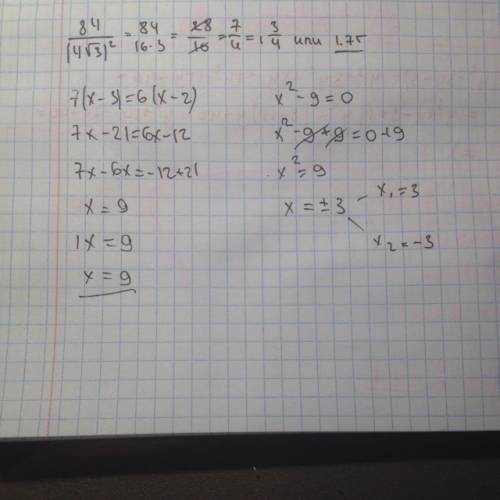 84/(4√3)² = 84/16·3 = 28/16 = 7/4 = 1 3/4 или 1.75
7(x-3)=6(x-2)
7x-21=6x-12
7x-6x=-12+21
x=9
1x=9
x=9
x²-9=0
x²-9+9=0+9
x²=9
x=±3
x₁=3
x₂=-3